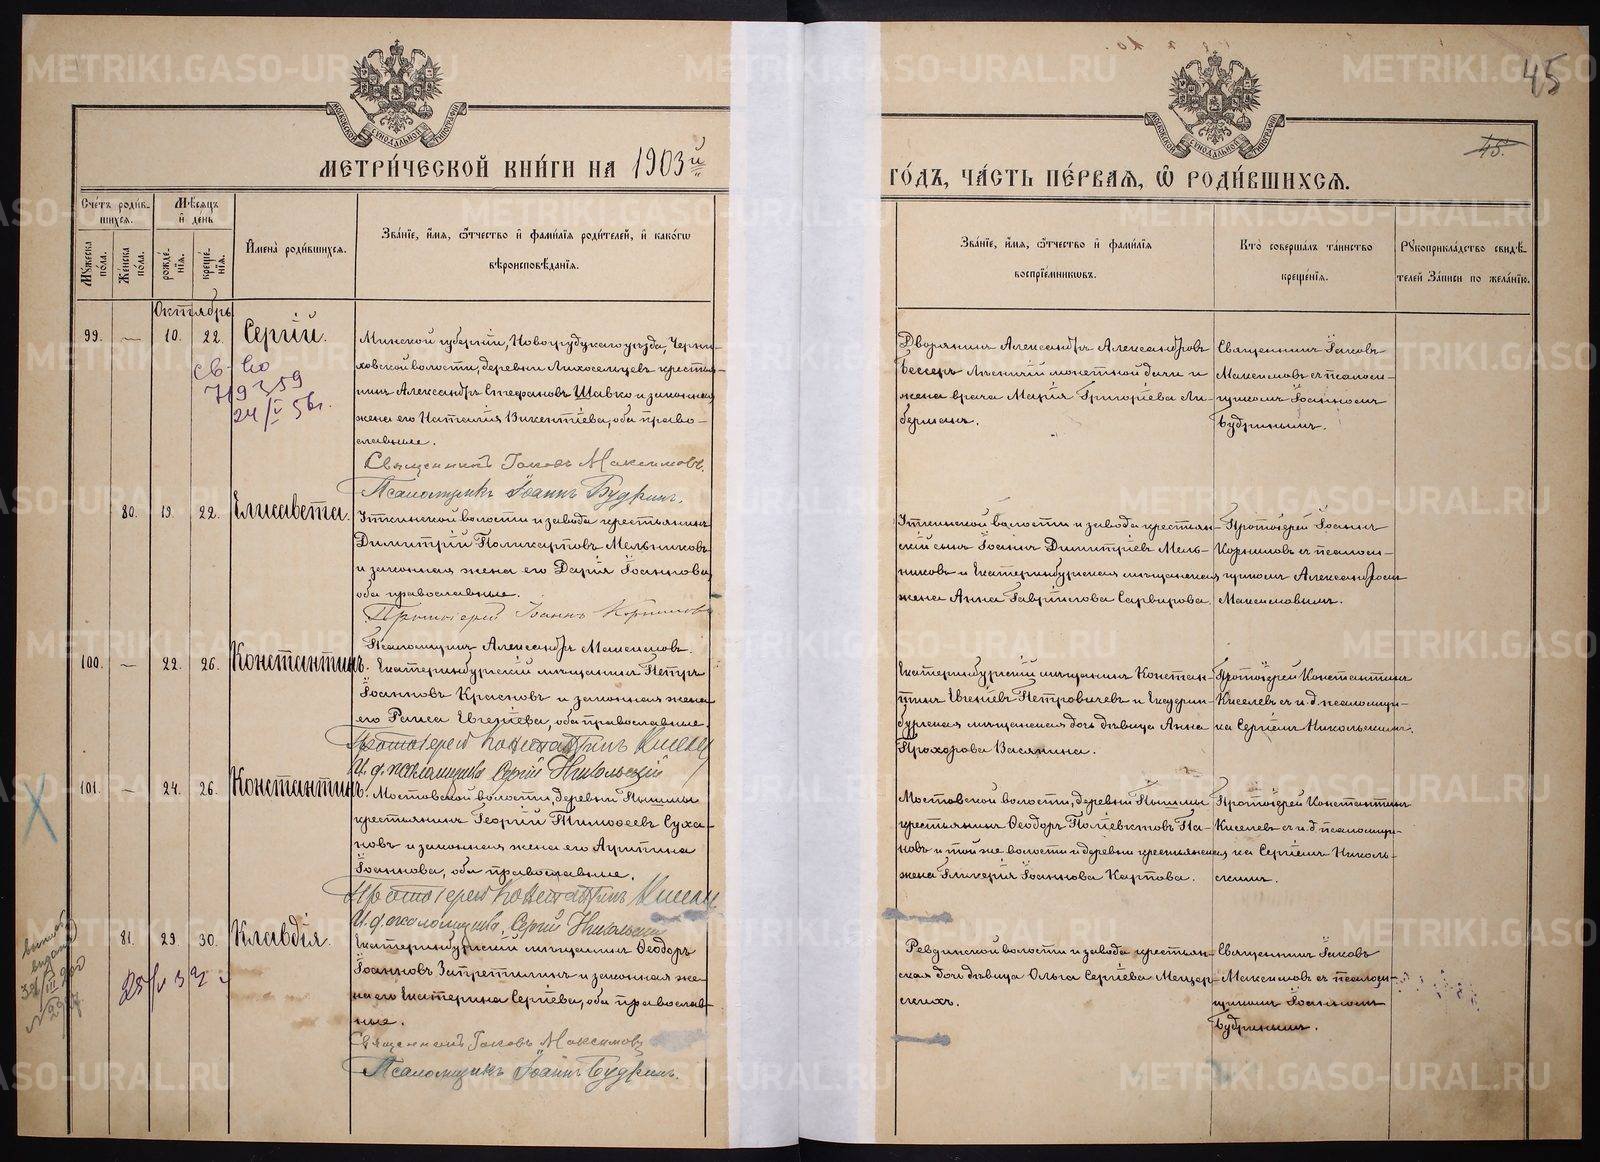 45
45.
МОСКОВСКОЙ СУНОДАЛЬНОЙ ТИПОГРАФІИ
МОСКОВСКОЙ СУНОДАЛЬНОЙ ТИПОГРАФІИ
МЕТРИ́ЧЕСКОЙ КНИ́ГИ НА 1903й
ГО́ДЪ, ЧА́СТЬ ПЕ́РВАЯ, Ѡ РОДИ́ВШИХСЯ.
Сче́тъ роди́в-
шихся.
Мꙋжеска по́ла.
Же́нска по́ла.
Мѣ́сяцъ и де́нь
рожде́-
нія.
креще́-
нія.
Имена̀ роди́вшихся.
Зва́ніе, и́мя, ѻ́тчество и фами́лія роди́телей, и како́гѡ
вѣроисповѣ́данія.
Зва́ніе, и́мя, ѻ́тчество и фами́лія
воспріе́мникѡвъ.
Кто̀ соверша́лъ та́инство
креще́нія.
Рꙋкоприкла́дство свидѣ́-
телей за́писи по жела́нію.
Октябрь
99. — 10. 22. Сергій.
св-во
719359
24/V 56г.
Минской губерніи, Новогрудскаго уѣзда, Черни-
ховской волости, деревни Лихосельцевъ крестья-
нинъ Александръ Стефановъ Шавко и законная
жена его Наталія Викентіева, оба право-
славные.
Священникъ Іаковъ Максимовъ.
Псаломщикъ Іоаннъ Будринъ.
Дворянинъ Александръ Александровъ
Бессеръ Лѣсничій монетной дачи и
жена врача Марія Григоріева Ли-
берманъ.
Священникъ Іаковъ
Максимовъ съ псалом-
щикомъ Іоанномъ
Будринымъ.
80. 19. 22. Елисавета.
Уткинской волости и завода крестьянинъ
Димитрій Поликарповъ Мельниковъ
и законная жена его Дарія Іоаннова,
оба православные.
Протоіерей Іоаннъ Корниловъ
Псаломщикъ Александръ Максимовъ.
Уткинской волости и завода крестьян-
скій сынъ Іоаннъ Димитріевъ Мель-
никовъ и Екатеринбургская мѣщанская
жена Анна Гавриилова Сарвирова.
Протоіерей Іоаннъ
Корниловъ съ псалом-
щикомъ Александромъ
Максимовымъ.
100. — 22. 26. Константинъ.
Екатеринбургскій мѣщанинъ Петръ
Іоанновъ Красновъ и законная жена
его Раиса Евгеніева, оба православные.
Протоіерей Константинъ Киселевъ
И. д. псаломщика Сергій Никольскій
Екатеринбургскій мѣщанинъ Констан-
тинъ Евгеніевъ Петровичевъ и Екатерин-
бургская мѣщанская дочь дѣвица Анна
Прохорова Васянина.
Протоіерей Константинъ
Киселевъ съ и. д. псаломщи-
ка Сергіемъ Никольскимъ.
101. — 24. 26. Константинъ.
Мостовской волости, деревни Пышмы
крестьянинъ Георгій Тимоѳеевъ Суха-
новъ и законная жена его Агриппина
Іоаннова, оба православные.
Протоіерей Константинъ Киселевъ
И. д. псаломщика Сергій Никольскій
Мостовской волости, деревни Пышмы
крестьянинъ Ѳеодоръ Поліевктовъ Па-
новъ и той же волости и деревни крестьянская
жена Гликерія Іоаннова Карпова.
Протоіерей Константинъ
Киселевъ съ и. д. псаломщи-
ка Сергіемъ Николь-
скимъ.
81. 29. 30. Клавдія.
Екатеринбургскій мѣщанинъ Ѳеодоръ
Іоанновъ Запретилинъ и законная же-
на его Екатерина Сергіева, оба православ-
ные.
Священникъ Іаковъ Максимовъ
Псаломщикъ Іоаннъ Будринъ.
Ревдинской волости и завода крестьян-
ская дочь дѣвица Ольга Сергіева Мещер-
скихъ.
Священникъ Іаковъ
Максимовъ съ псалом-
щикомъ Іоанномъ
Будринымъ.
METRIKI.GASO-URAL.RU